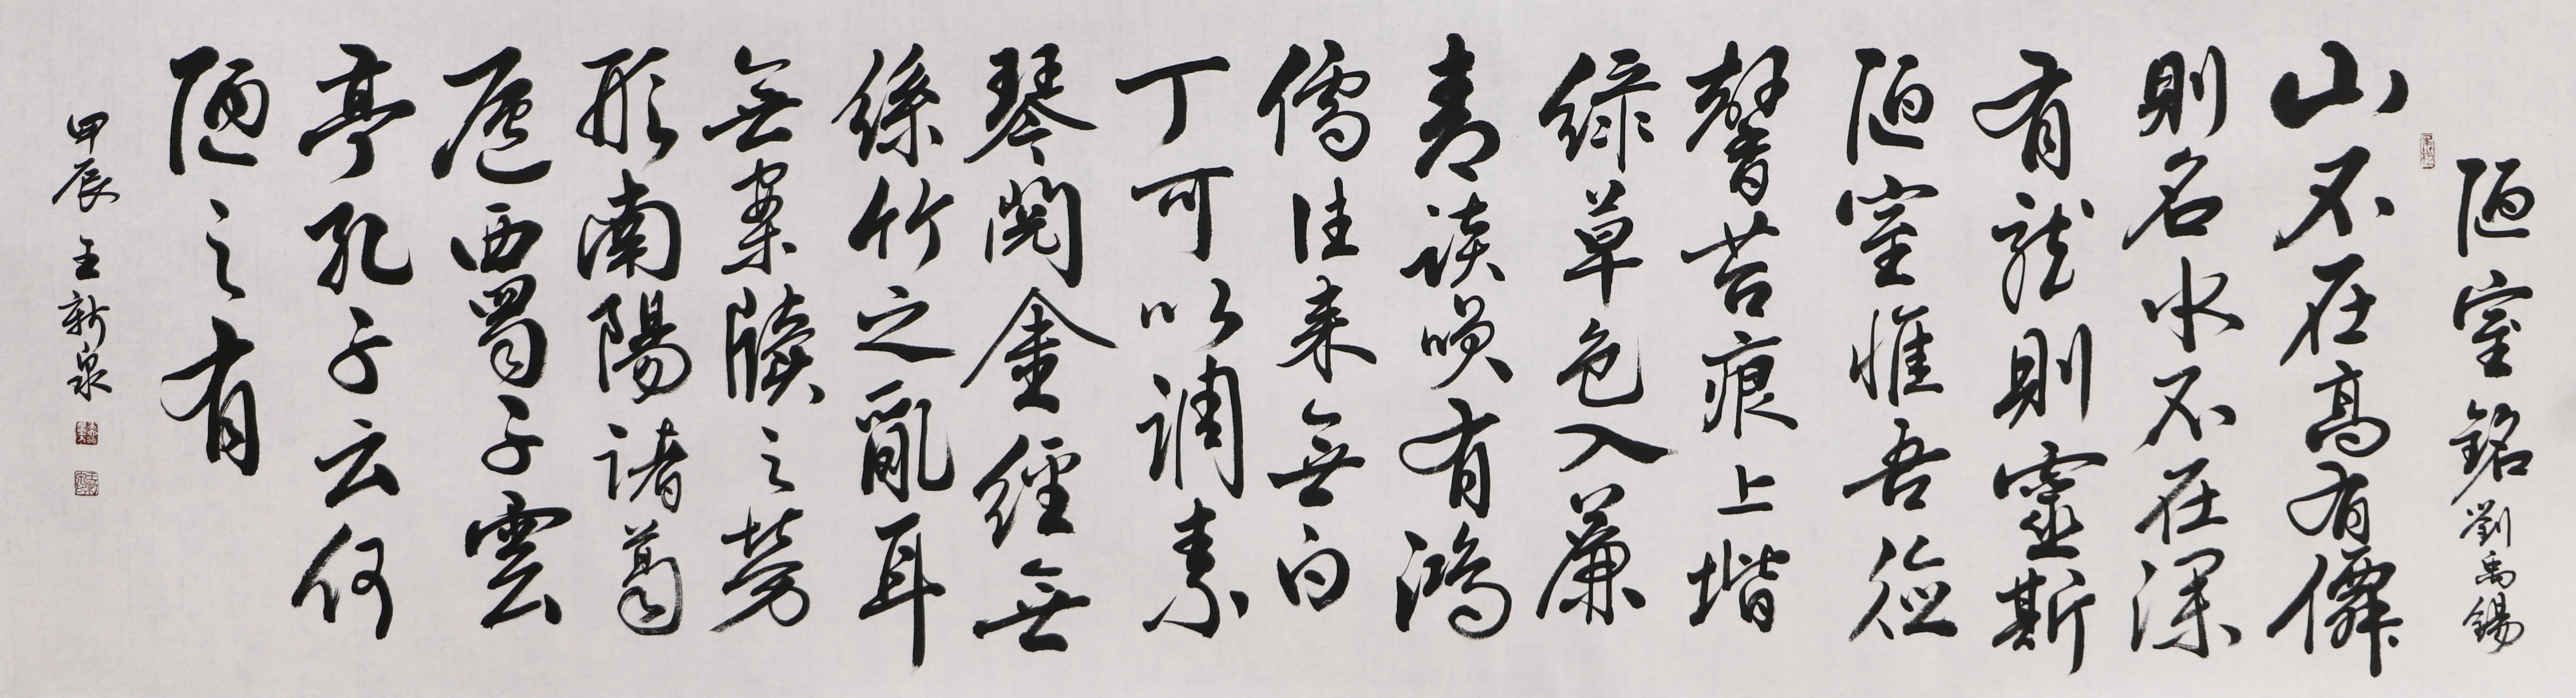 陋室銘 劉禹錫
山不在高有僊
則名水不在深
有龍則靈斯
陋室惟吾德
馨苔痕上堦
綠草色入簾
青談咲有鴻
儒往来無白
丁可以調素
琴閱金經無
絲竹之亂耳
無案牘之勞
形南陽諸葛
廬西蜀子雲
亭孔子云何
陋之有
甲辰 王新泉